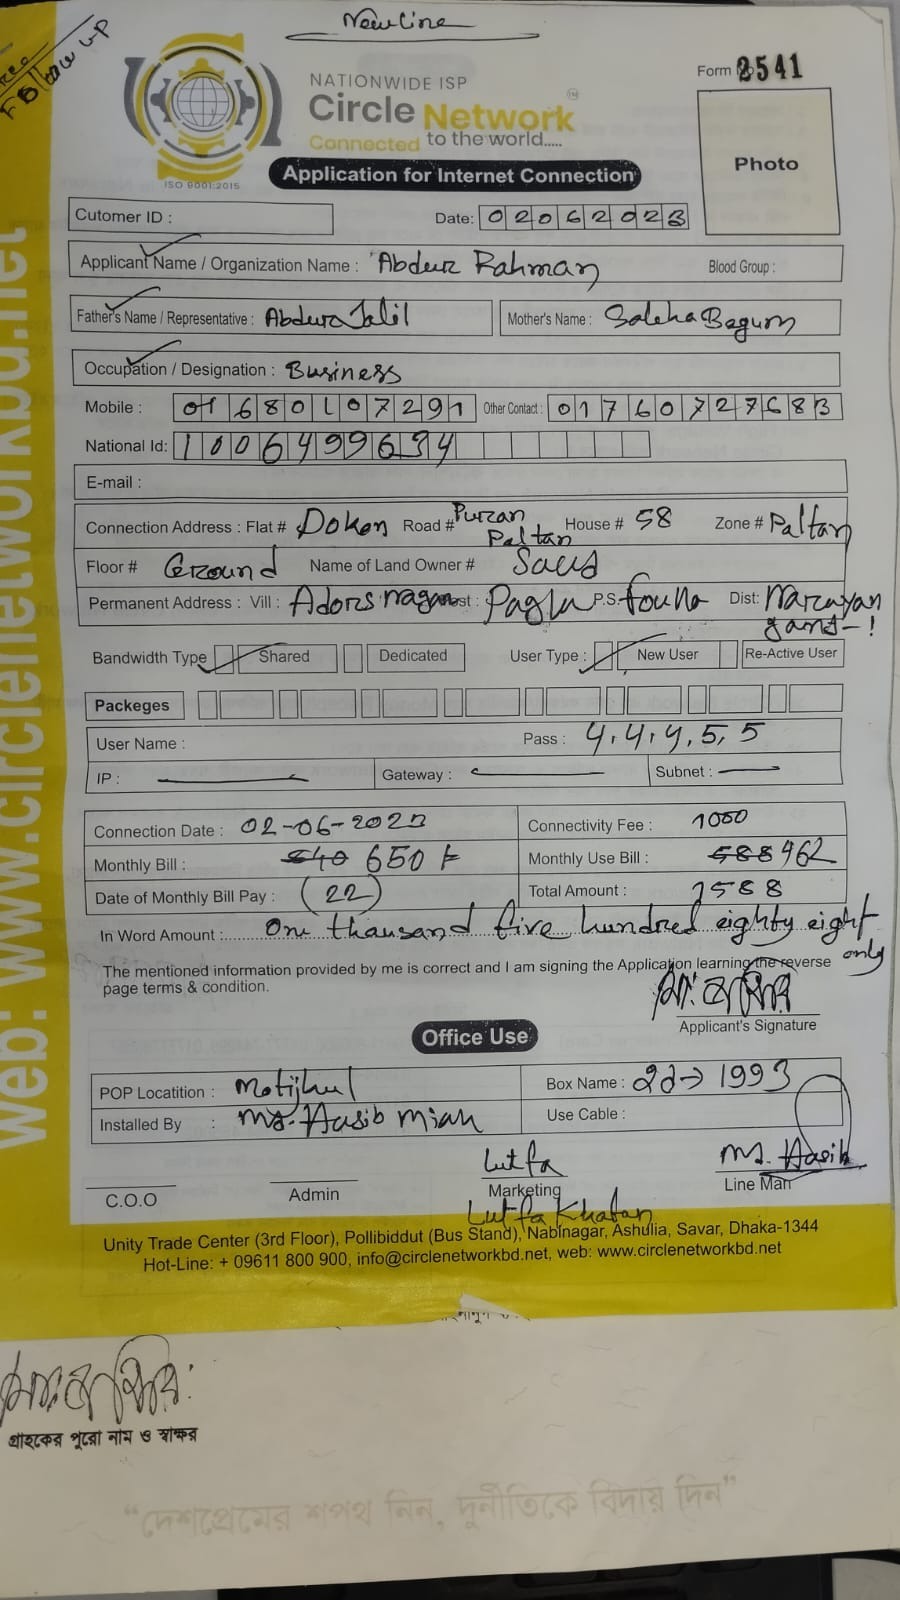 New Line
Follow up
Form No 2541
NATIONWIDE ISP
Circle Network
Connected to the world.....
ISO 9001:2015
Application for Internet Connection
Photo
Cutomer ID :
Date: 02062023
Applicant Name / Organization Name : Abdur Rahman Blood Group :
Father's Name / Representative : Abdur Jalil Mother's Name : Saleha Begum
Occupation / Designation : Business
Mobile : 01680107291 Other Contact : 01760727683
National Id: 1006499634
E-mail :
Connection Address : Flat # Dokan Road # Puran Paltan House # 58 Zone # Paltan
Floor # Ground Name of Land Owner #
Permanent Address : Vill : Adorsnagar Post : Pagla P.S. Dist: Narayan
ganj-!
Bandwidth Type Shared Dedicated User Type : New User Re-Active User
Packeges
User Name : Pass : 4,4,4,5,5
IP : Gateway : Subnet :
Connection Date : 02-06-2023 Connectivity Fee : 1000
Monthly Bill : 540 650 Monthly Use Bill : 588 462
Date of Monthly Bill Pay : (22) Total Amount : 1588
In Word Amount :...... One thausand five hundred eighty eight
only
The mentioned information provided by me is correct and I am signing the Application learning the reverse
page terms & condition.
Applicant's Signature
Office Use
POP Locatition : Motijhul Box Name : 1993
Installed By : Md. Hasib Miah Use Cable :
Lutfa Md. Hasib
C.O.O Admin Marketing Line Man
Lutfa Khatan
Unity Trade Center (3rd Floor), Pollibiddut (Bus Stand), Nabinagar, Ashulia, Savar, Dhaka-1344
Hot-Line: + 09611 800 900, info@circlenetworkbd.net, web: www.circlenetworkbd.net
web: www.circlenetworkbd.net
গ্রাহকের পুরো নাম ও স্বাক্ষর
“দেশপ্রেমের শপথ নিন, দুর্নীতিকে বিদায় দিন”